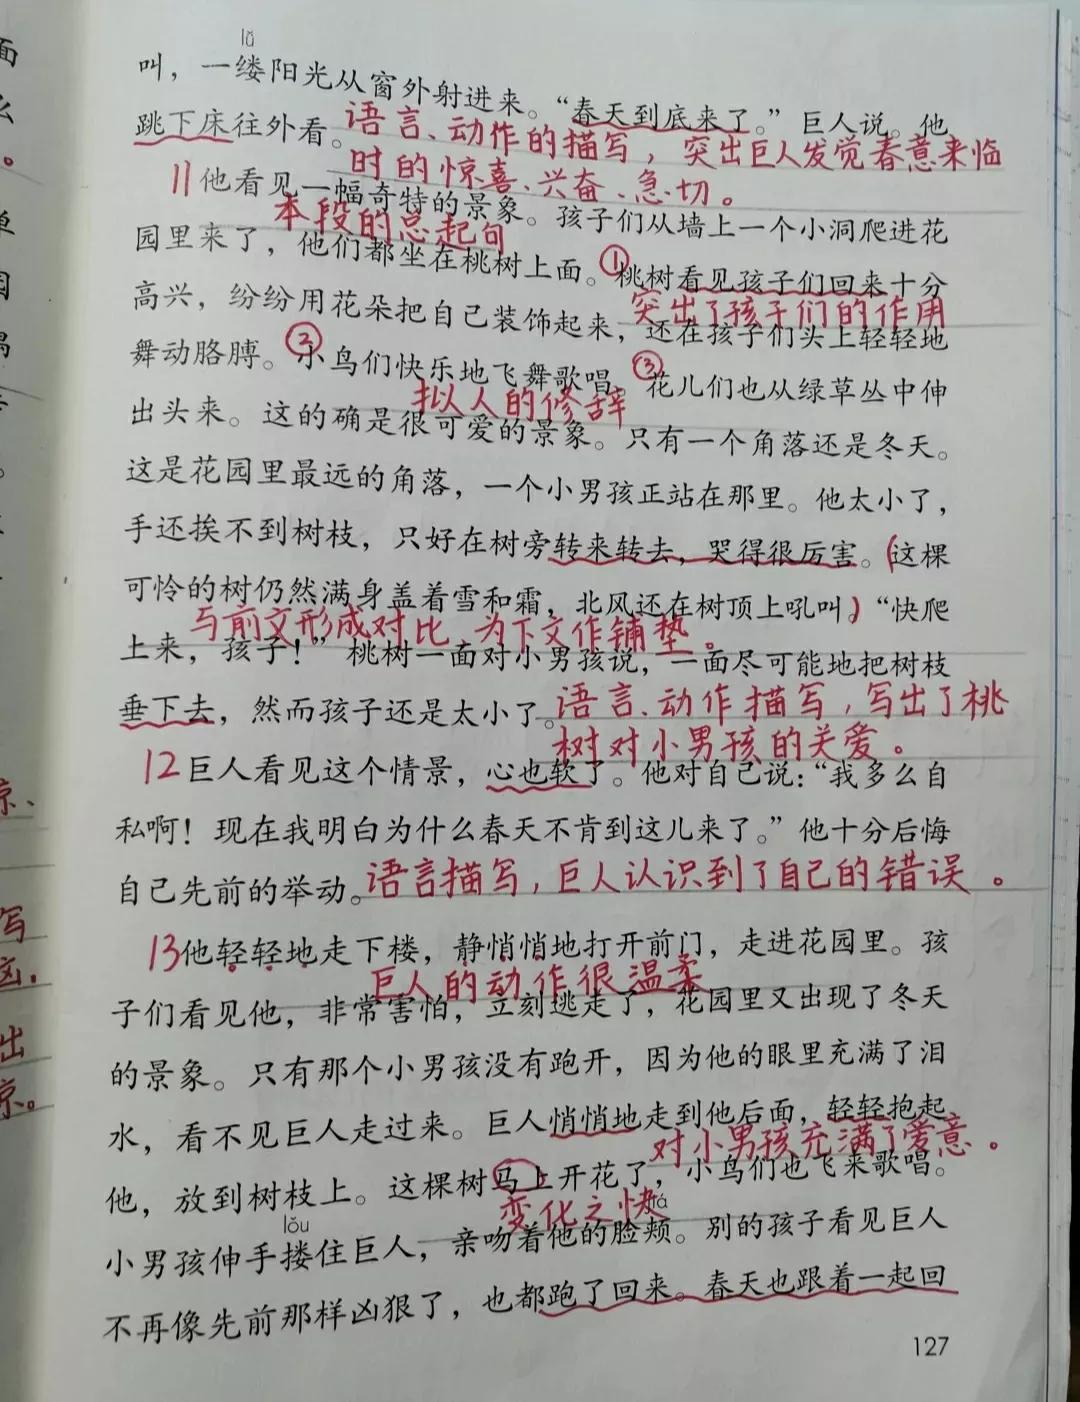 lǚ
叫，一缕阳光从窗外射进来。“春天到底来了。”巨人说。他
跳下床往外看。
语言、动作的描写，突出巨人发觉春意来临
时的惊喜、兴奋、急切。
11他看见一幅奇特的景象。孩子们从墙上一个小洞爬进花
本段的总起句
园里来了，他们都坐在桃树上面。①桃树看见孩子们回来十分
高兴，纷纷用花朵把自己装饰起来，还在孩子们头上轻轻地
突出了孩子们的作用
舞动胳膊。③小鸟们快乐地飞舞歌唱，③花儿们也从绿草丛中伸
拟人的修辞
出头来。这的确是很可爱的景象。只有一个角落还是冬天。
这是花园里最远的角落，一个小男孩正站在那里。他太小了，
手还挨不到树枝，只好在树旁转来转去，哭得很厉害。(这棵
可怜的树仍然满身盖着雪和霜，北风还在树顶上吼叫)“快爬
与前文形成对比 为下文作铺垫。
上来，孩子！”桃树一面对小男孩说，一面尽可能地把树枝
垂下去，然而孩子还是太小了。
语言、动作描写，写出了桃
树对小男孩的关爱。
12巨人看见这个情景，心也软了。他对自己说：“我多么自
私啊！现在我明白为什么春天不肯到这儿来了。”他十分后悔
自己先前的举动。
语言描写，巨人认识到了自己的错误。
13他轻轻地走下楼，静悄悄地打开前门，走进花园里。孩
巨人的动作很温柔
子们看见他，非常害怕，立刻逃走了，花园里又出现了冬天
的景象。只有那个小男孩没有跑开，因为他的眼里充满了泪
水，看不见巨人走过来。巨人悄悄地走到他后面，轻轻抱起
对小男孩充满了爱意。
他，放到树枝上。这棵树马上开花了，小鸟们也飞来歌唱。
变化之快
lǒu
小男孩伸手搂住巨人，亲吻着他的脸颊。别的孩子看见巨人
不再像先前那样凶狠了，也都跑了回来。春天也跟着一起回
127
面
么
单
园
写
出